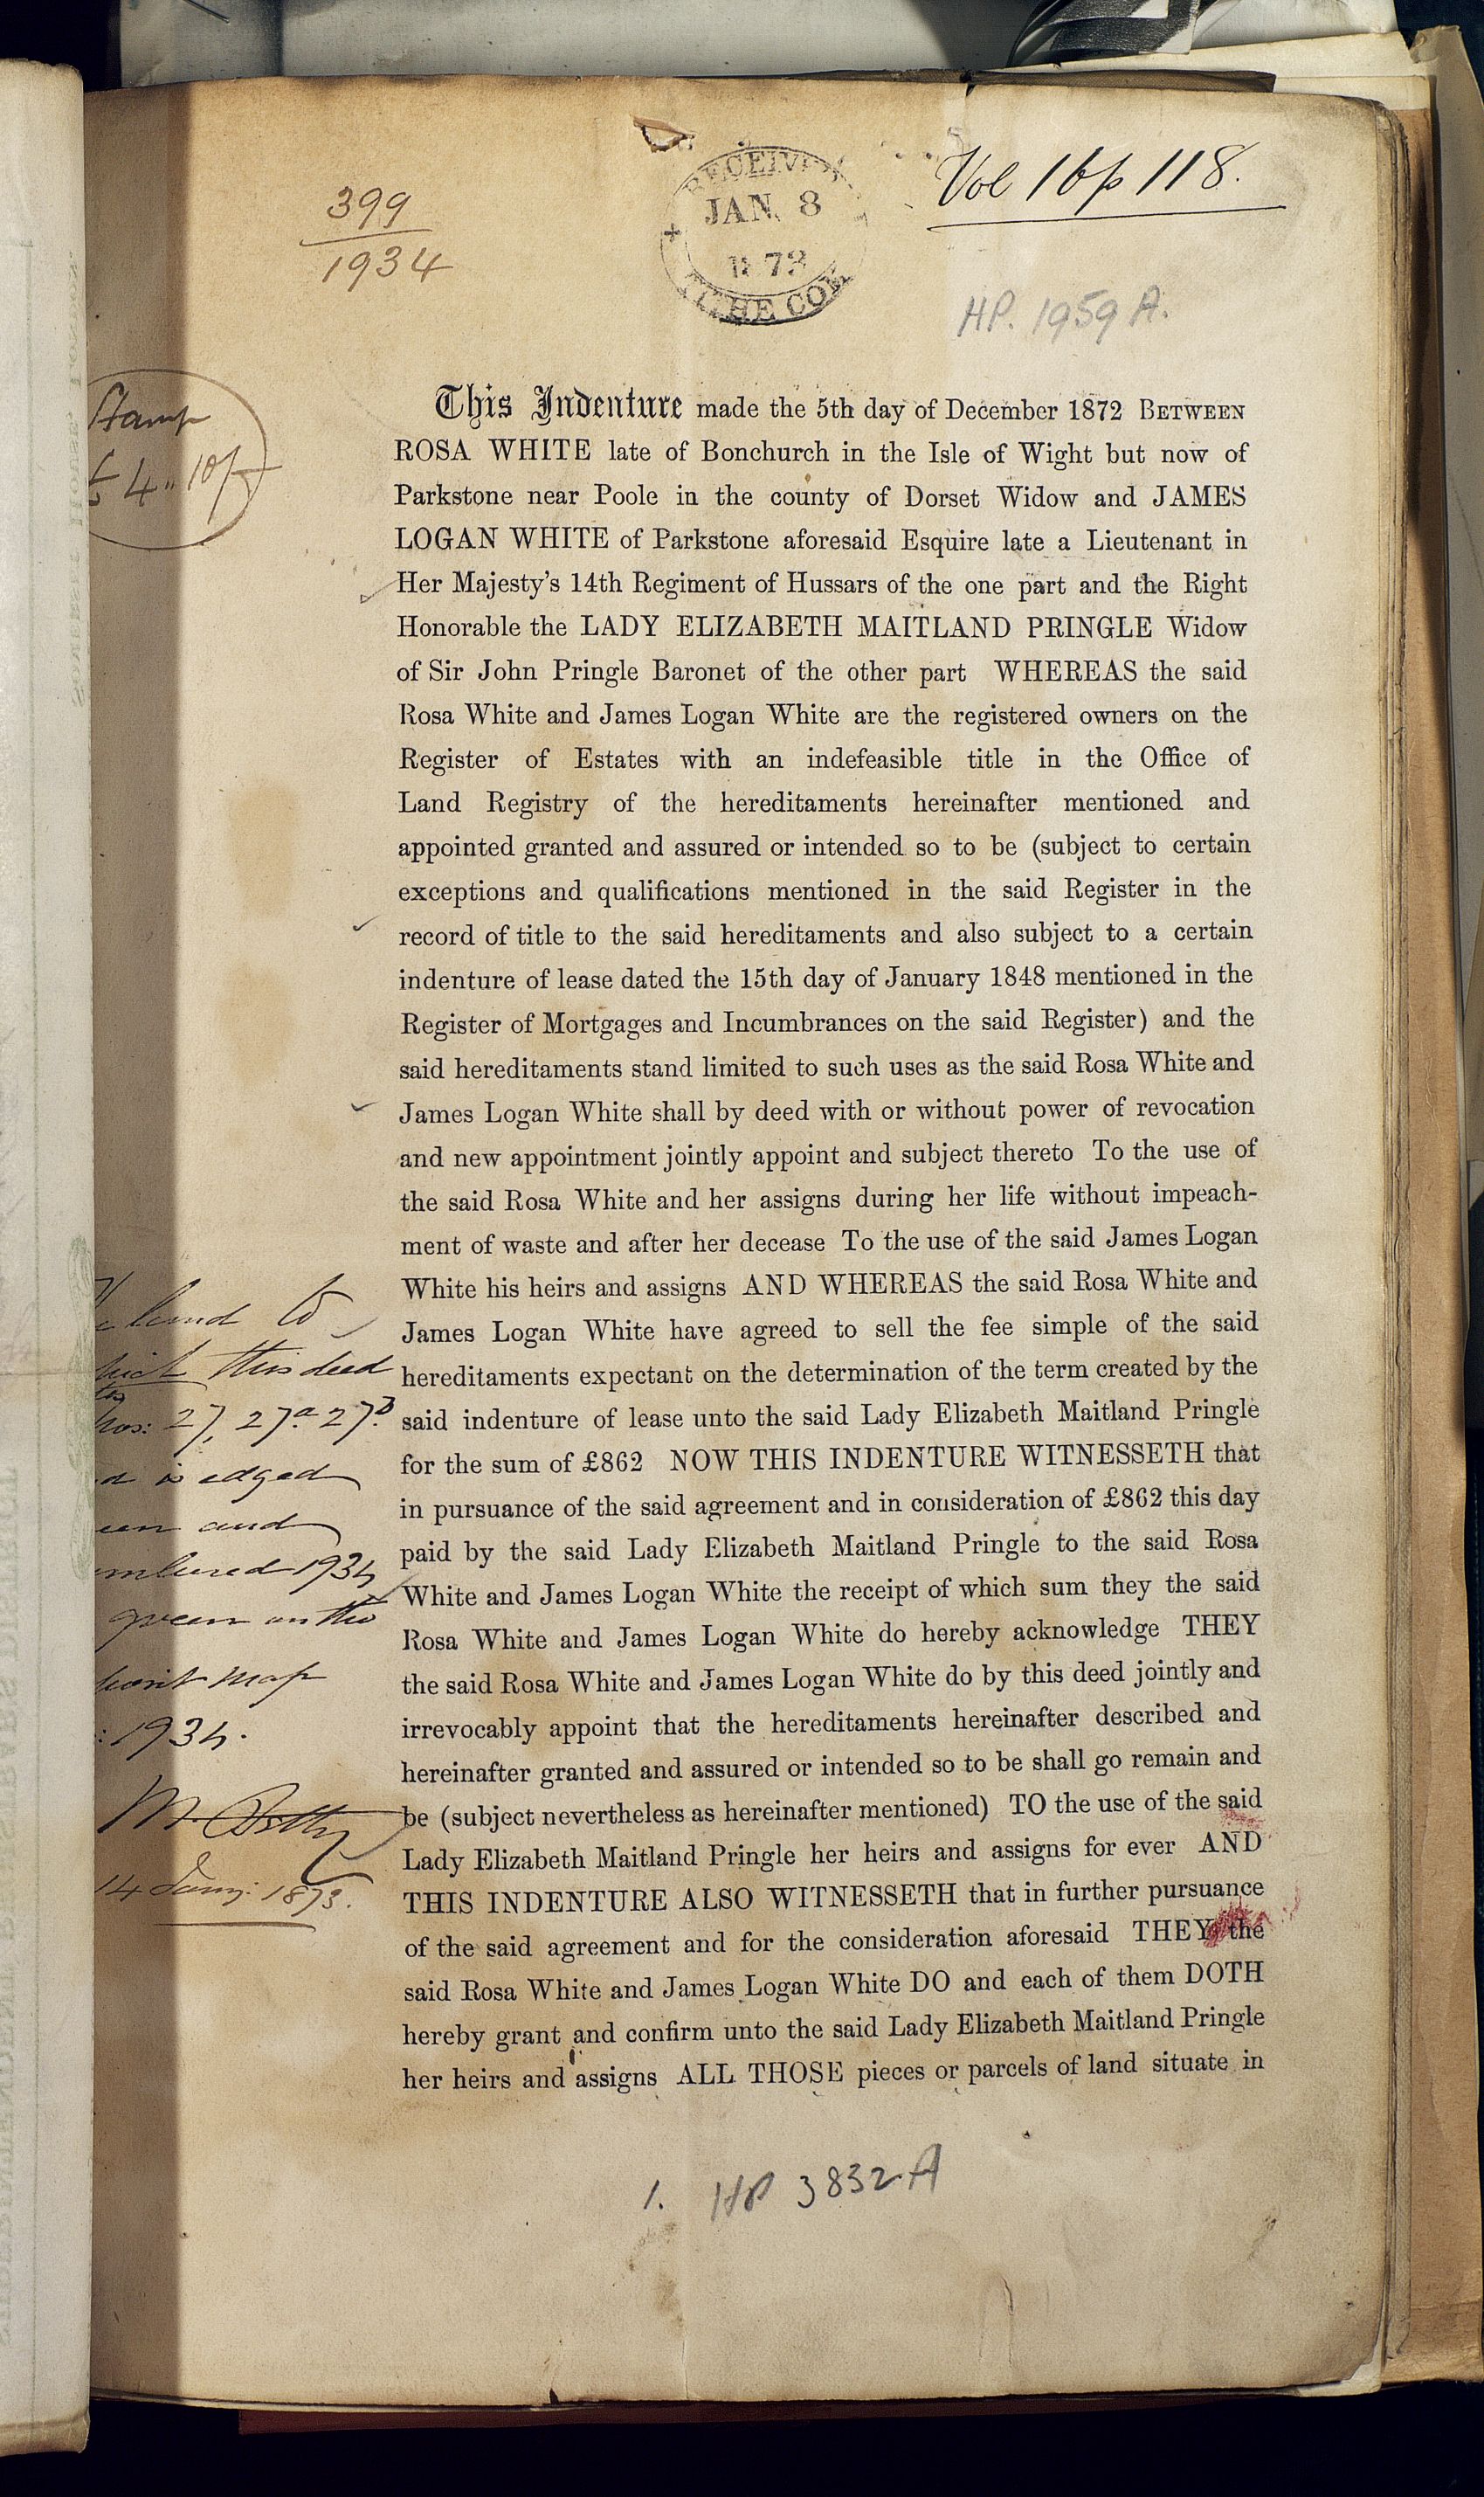 399
1934
RECEIVED
JAN 8
1873
THE
Vol 16 p 118.
HP. 1959 A.
Stamp
£4 " 10/
This Indenture made the 5th day of December 1872 BETWEEN
ROSA WHITE late of Bonchurch in the Isle of Wight but now of
Parkstone near Poole in the county of Dorset Widow and JAMES
LOGAN WHITE of Parkstone aforesaid Esquire late a Lieutenant in
Her Majesty's 14th Regiment of Hussars of the one part and the Right
Honorable the LADY ELIZABETH MAITLAND PRINGLE Widow
of Sir John Pringle Baronet of the other part WHEREAS the said
Rosa White and James Logan White are the registered owners on the
Register of Estates with an indefeasible title in the Office of
Land Registry of the hereditaments hereinafter mentioned and
appointed granted and assured or intended so to be (subject to certain
exceptions and qualifications mentioned in the said Register in the
record of title to the said hereditaments and also subject to a certain
indenture of lease dated the 15th day of January 1848 mentioned in the
Register of Mortgages and Incumbrances on the said Register) and the
said hereditaments stand limited to such uses as the said Rosa White and
James Logan White shall by deed with or without power of revocation
and new appointment jointly appoint and subject thereto To the use of
the said Rosa White and her assigns during her life without impeach-
ment of waste and after her decease To the use of the said James Logan
White his heirs and assigns AND WHEREAS the said Rosa White and
James Logan White have agreed to sell the fee simple of the said
hereditaments expectant on the determination of the term created by the
said indenture of lease unto the said Lady Elizabeth Maitland Pringle
for the sum of £862 NOW THIS INDENTURE WITNESSETH that
in pursuance of the said agreement and in consideration of £862 this day
paid by the said Lady Elizabeth Maitland Pringle to the said Rosa
White and James Logan White the receipt of which sum they the said
Rosa White and James Logan White do hereby acknowledge THEY
the said Rosa White and James Logan White do by this deed jointly and
irrevocably appoint that the hereditaments hereinafter described and
hereinafter granted and assured or intended so to be shall go remain and
be (subject nevertheless as hereinafter mentioned) TO the use of the said
Lady Elizabeth Maitland Pringle her heirs and assigns for ever AND
THIS INDENTURE ALSO WITNESSETH that in further pursuance
of the said agreement and for the consideration aforesaid THEY the
said Rosa White and James Logan White DO and each of them DOTH
hereby grant and confirm unto the said Lady Elizabeth Maitland Pringle
her heirs and assigns ALL THOSE pieces or parcels of land situate in
land to
this deed
nos: 27, 27a 27b
is edged
and
1934
green on the
map
1934.
14 Jany: 1873.
1. HP 3832 A